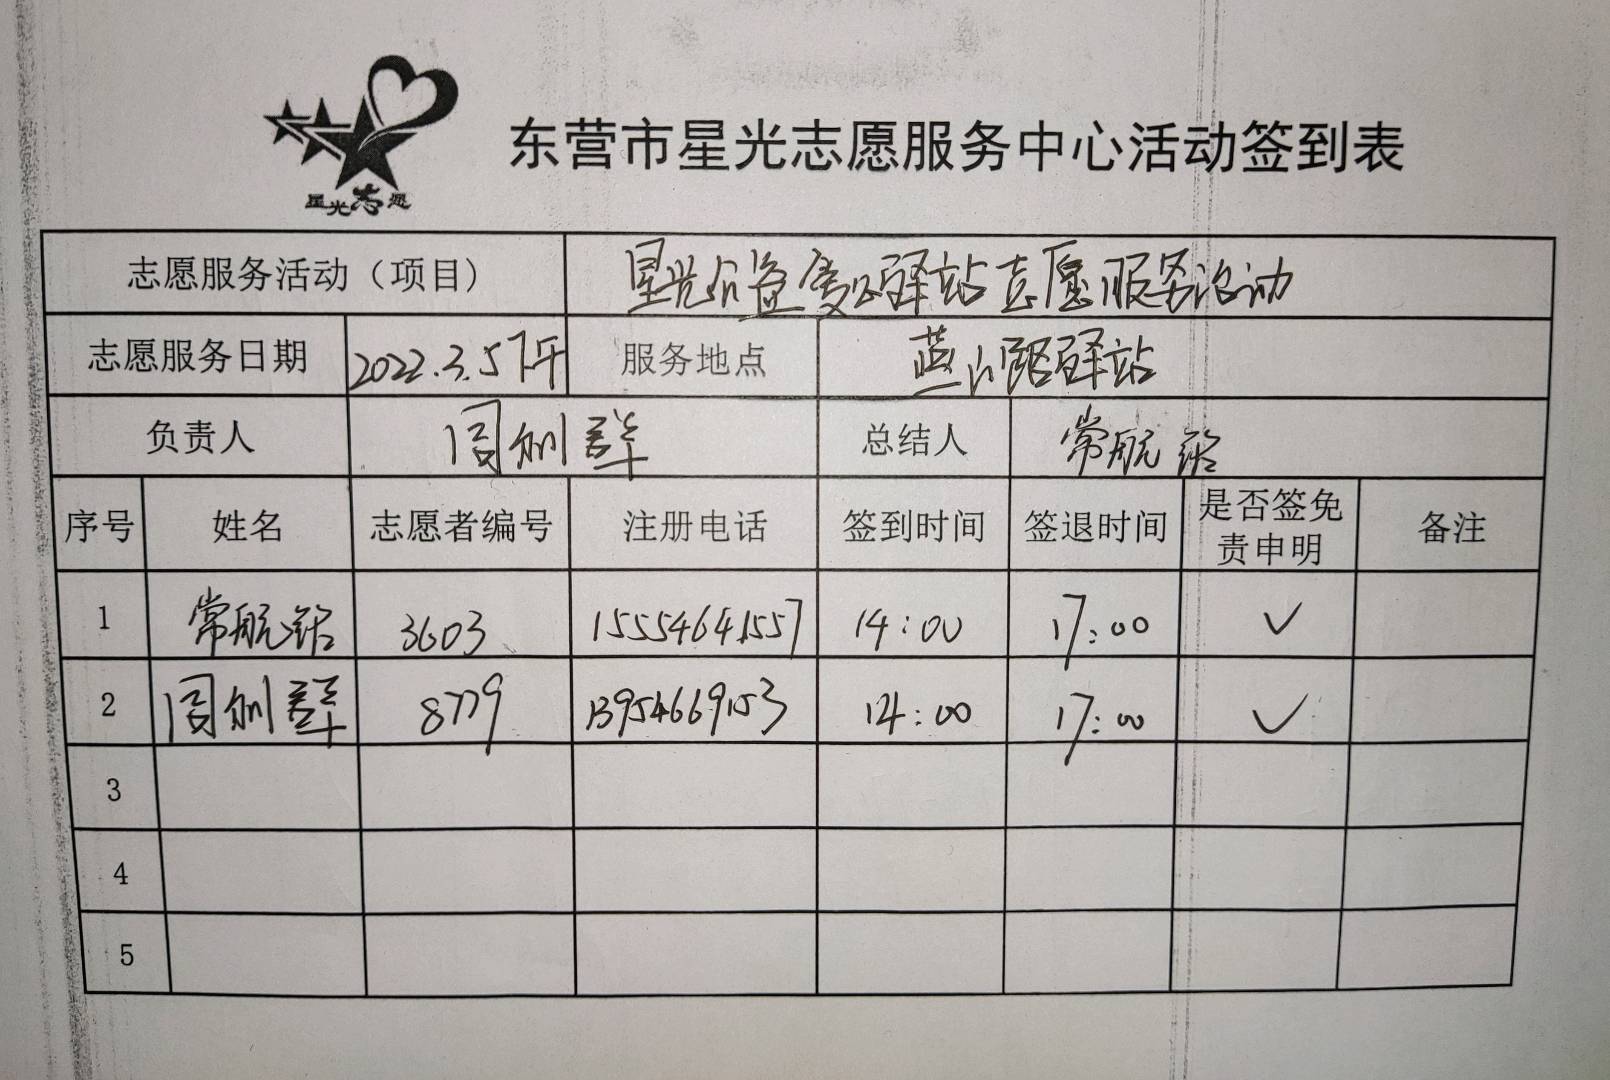 星光志愿
东营市星光志愿服务中心活动签到表
志愿服务活动（项目） 星光公益爱心驿站志愿服务活动
志愿服务日期 2022.3.5下午 服务地点 燕山路驿站
负责人 周洲群 总结人 常航铭
序号 姓名 志愿者编号 注册电话 签到时间 签退时间 是否签免责申明 备注
1 常航铭 3603 15554641557 14:00 17:00 ✓
2 周洲群 8779 13954669153 14:00 17:00 ✓
3
4
5